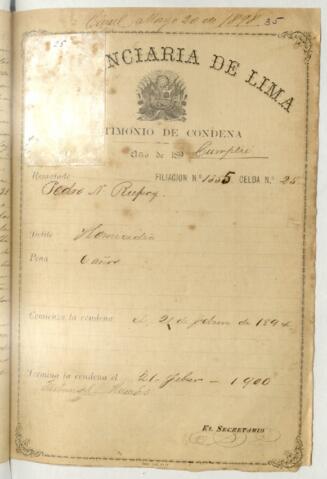 Mayo 20 de 1898. 35
25
NCIARIA DE LIMA
TIMONIO DE CONDENA
Año de 189 Cumple
Rematado FILIACION N.º 1355 CELDA N.º 25
Pedro N.
Delito Homicidio
Pena 6 años
Comienza la condena el 21 de febrero de 1894
Termina la condena el 21 Febr - 1900
EL SECRETARIO